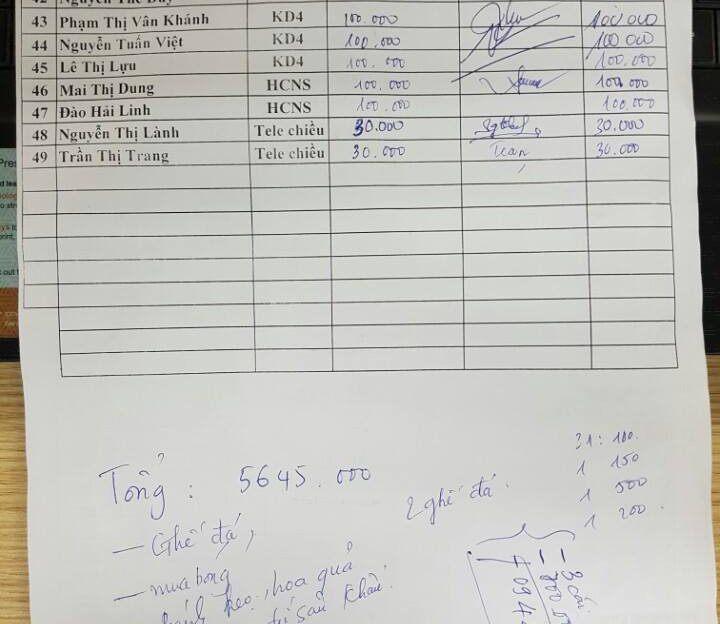 43 Phạm Thị Vân Khánh KD4 100.000 100 000
44 Nguyễn Tuấn Việt KD4 100.000 100 000
45 Lê Thị Lựu KD4 100.000 100.000
46 Mai Thị Dung HCNS 100.000 100.000
47 Đào Hải Linh HCNS 100.000 100.000
48 Nguyễn Thị Lành Tele chiều 30.000 30.000
49 Trần Thị Trang Tele chiều 30.000 30.000
31: 100.
1 150
1 500
1 200.
Tổng : 5645.000
2 ghế đá.
— Ghế đá,
— mua bóng
kẹo, hoa quả
sân khấu.
- 3 cái